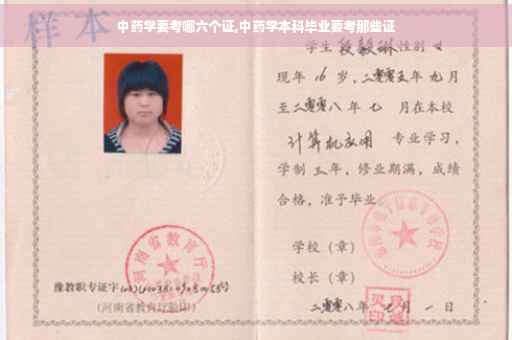 中药学要考哪六个证,中药学本科毕业要考那些证
样本
学生 段毅琳 性别 女
现年 16 岁,二零零五年九月
至二零零八年七 月在本校
计算机应用 专业学习,
学制 三年,修业期满,成绩
合格,准予毕业
学校(章)
校长(章)
二零零八年 七 月 一 日
河南省教育厅
豫教职专证字
(河南省教育厅验印)